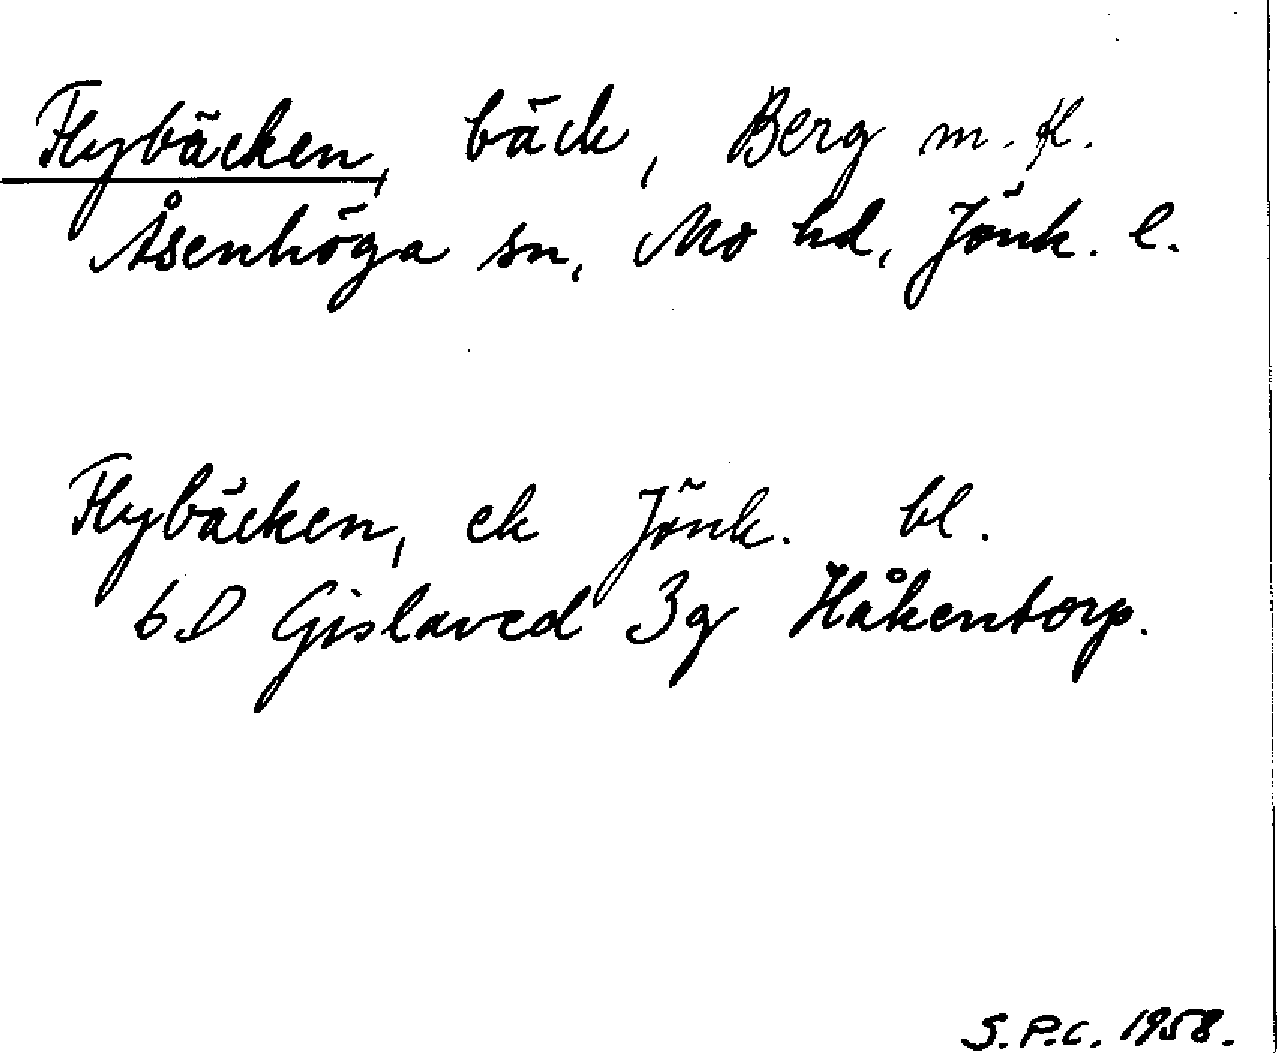 Flybäcken, bäck, Berg m. fl.
Åsenhöga sn, Mo hd, Jönk. l.
Flybäcken, ek Jönk. bl.
6D Gislaved 3g Håkentorp.
S.P.C. 1958.